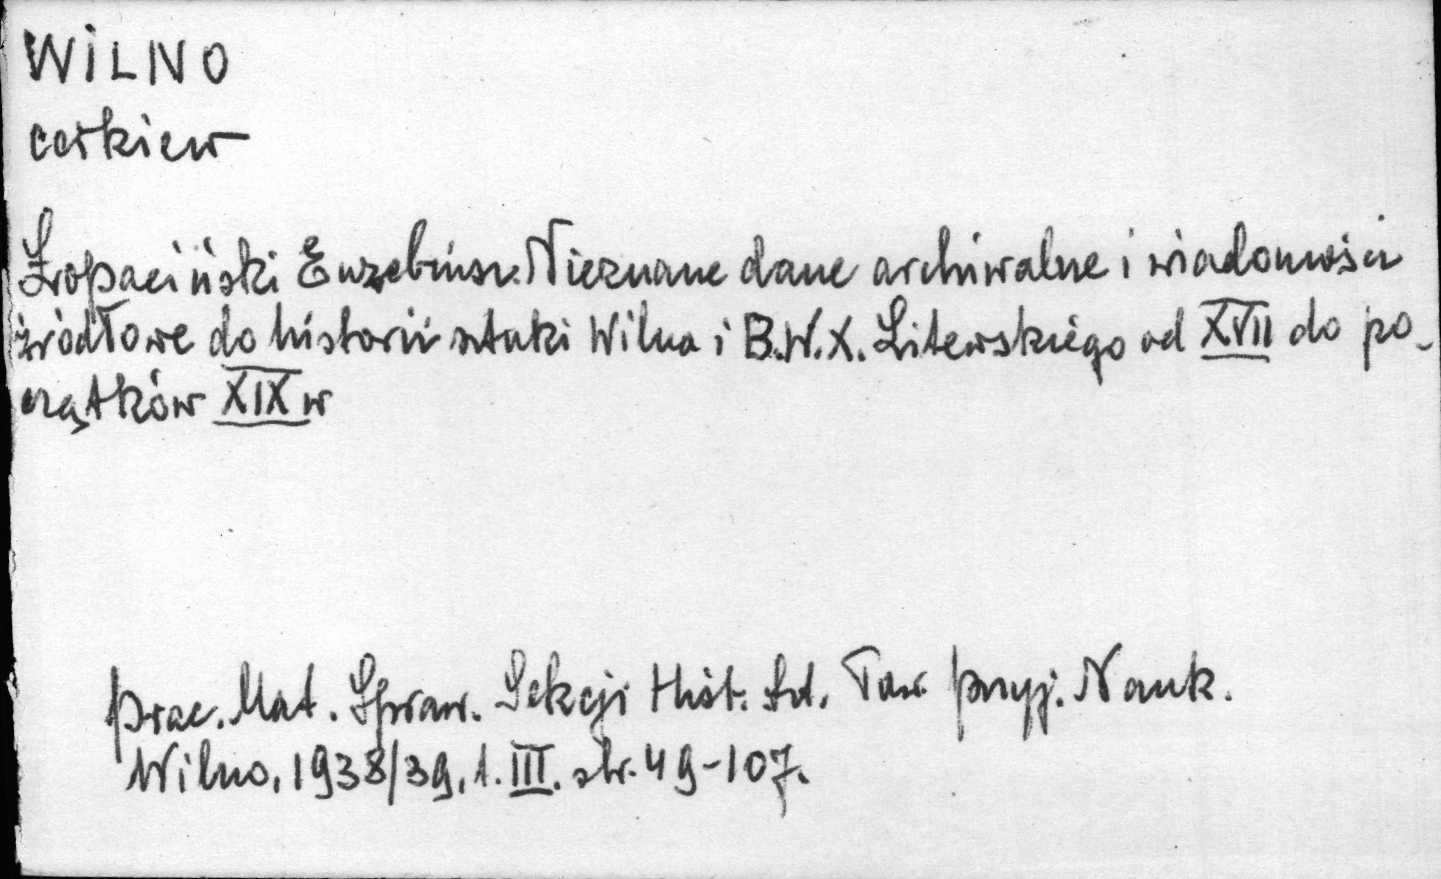 WILNO
cerkiew
Łopaciński Euzebiusz. Nieznane dane archiwalne i wiadomości
źródłowe do historii sztuki Wilna i B.W.X. Litewskiego od XVII do po-
czątków XIX w
Prac. Mat. Spraw. Sekcji Hist. Szt. Tow. Przyj. Nauk.
Wilno, 1938/39, t. III. str. 49-107.